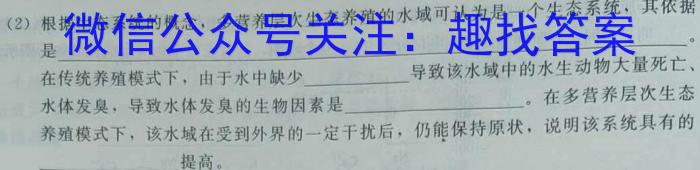 (2) 根据生态系统的概念，多营养层次生态养殖的水域可认为是一个生态系统，其依据
微信公众号关注：趣找答案
是____________。
在传统养殖模式下，由于水中缺少____________导致该水域中的水生动物大量死亡、
水体发臭，导致水体发臭的生物因素是____________。在多营养层次生态
养殖模式下，该水域在受到外界的一定干扰后，仍能保持原状，说明该系统具有的
____________提高。